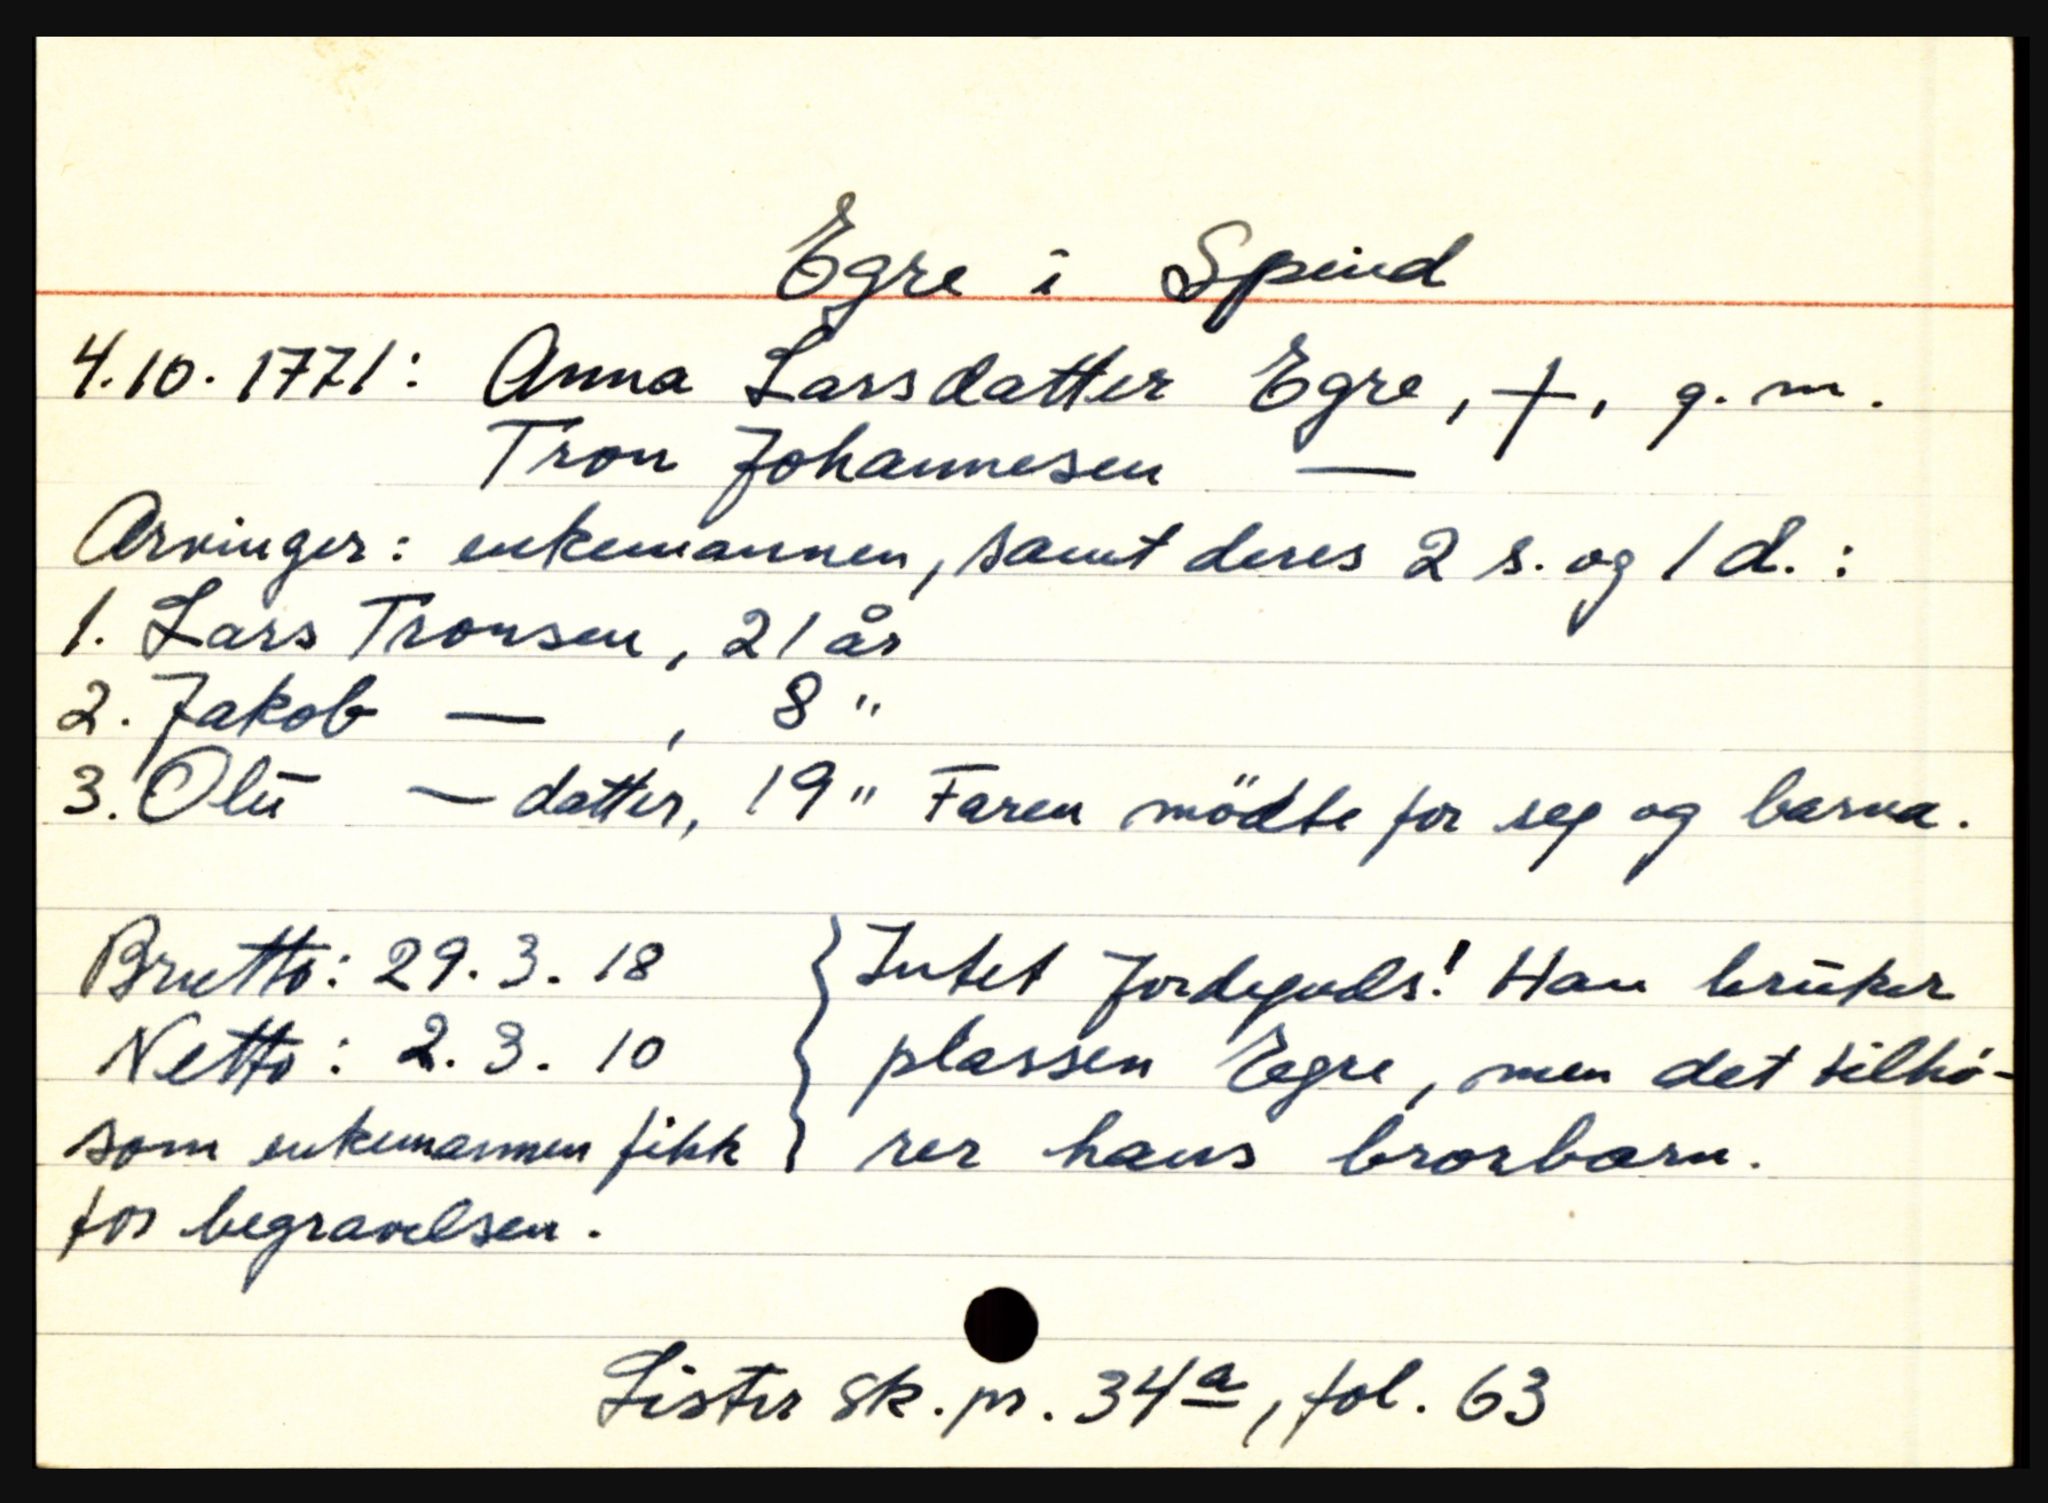 Egre i Spind
4.10.1771: Anna Larsdatter Egre, †, g. m.
Tron Johannesen —
Arvinger: enkemannen, samt deres 2 s. og 1 d. :
1. Lars Tronsen, 21 år
2. Jakob — , 8 "
3. Olū — datter, 19 " Faren mödte for seg og barna.
Brutto: 29. 3. 18 } Intet Jordegods! Han brūker
Netto: 2. 3. 10 } plassen Egre, men det tilhö-
som enkemannen fikk } rer hans brorbarn.
for begravelsen.
Lister sk. pr. 34a, fol. 63